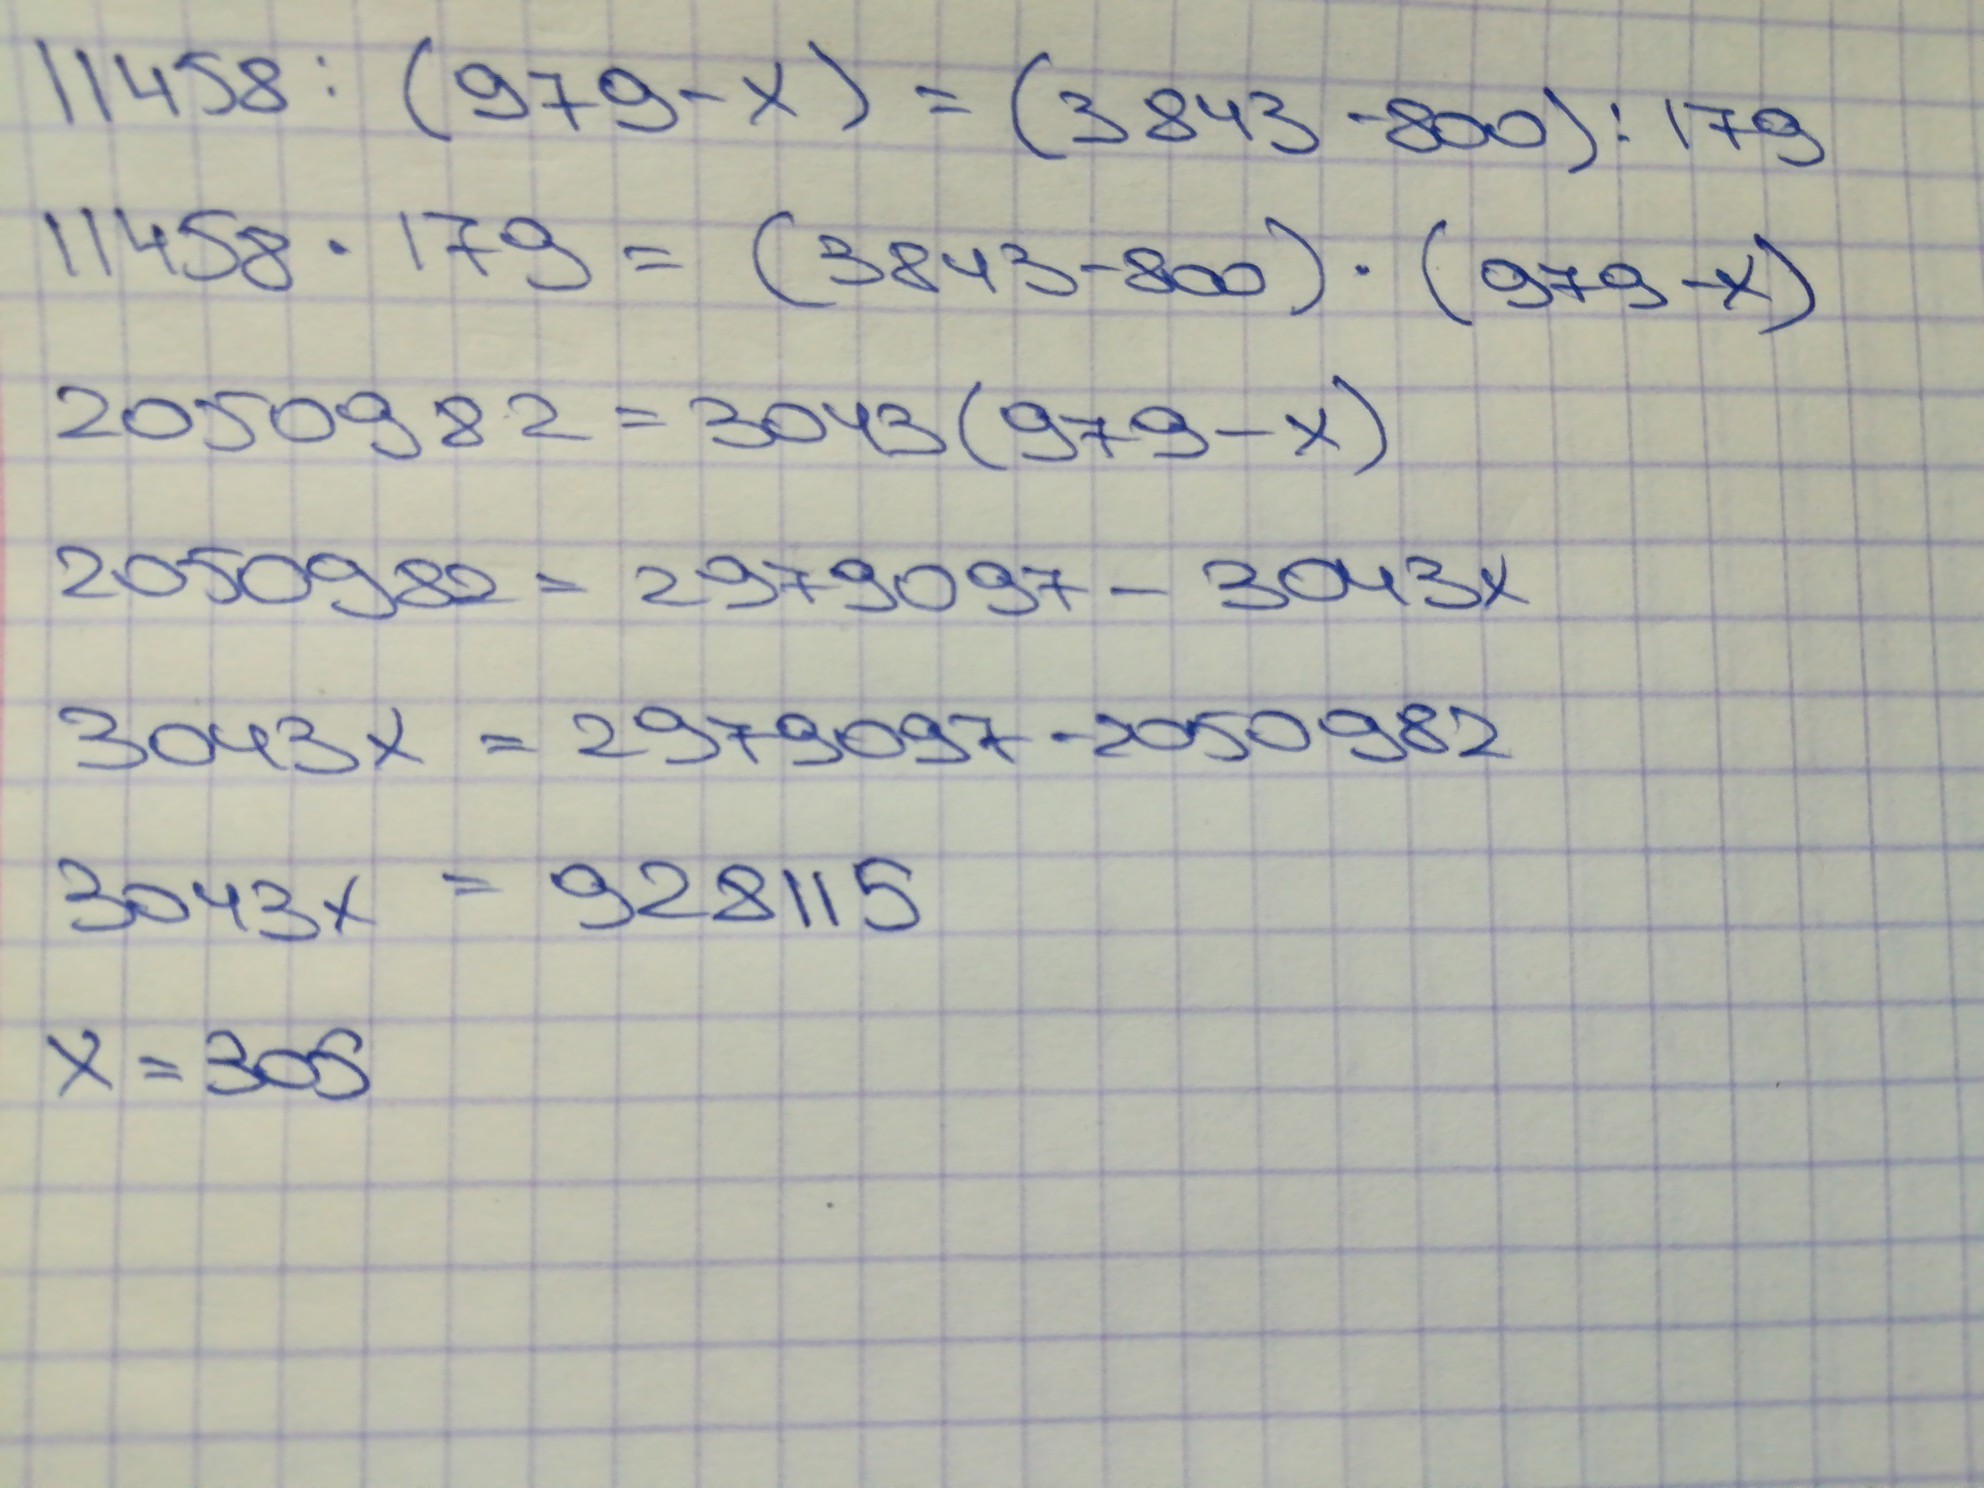 11458 : (979-x) = (3843-800) : 179
11458 · 179 = (3843-800) · (979-x)
2050982 = 3043(979-x)
2050982 = 2979097 - 3043x
3043x = 2979097 - 2050982
3043x = 928115
x = 305